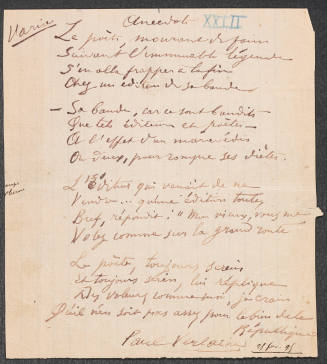 Varia
Anecdote
XXIII
Le poète, mourant de faim
Suivant l'immuable légende
S'en alla frapper à la fin
Chez un éditeur de sa bande
— Sa bande, car ce sont bandits
Que tels éditeurs et poètes —
A l'effet d'un maravédis
Ou deux, pour rompre ses diètes.
L'éditeur qui venait de ne
Vendre qu'une édition toute,
Bref, répondit : "Mon vieux, vous me
Volez comme sur la grand route
Le poète, toujours serein
Et toujours serin, lui réplique
Des voleurs comme moi, je crains
Qu'il n'en soit pas assez pour le bien de la
République
Paul Verlaine